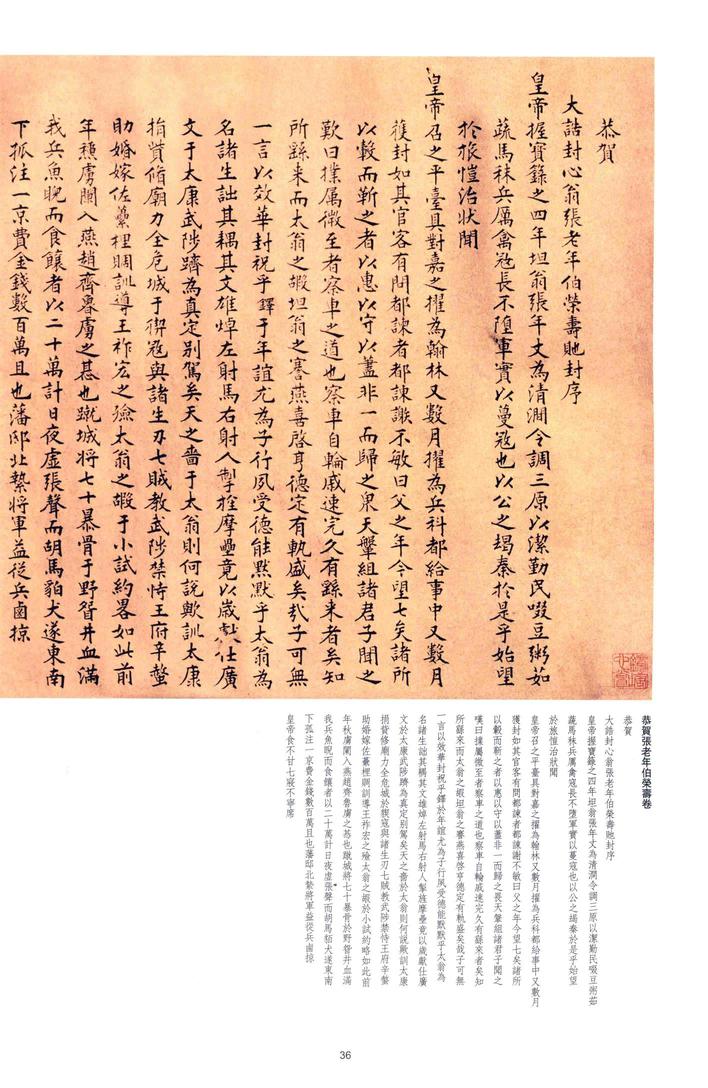 恭賀
大誥封心翁張老年伯榮壽貤封序
皇帝握寶錄之四年坦翁張年丈為清澗令調三原以潔勤民啜豆粥茹
蔬馬秣兵厲禽寇長不墮軍實以蔓寇也以公之竭秦於是乎始望
於旅愷治狀聞
皇帝召之平臺具對嘉之擢為翰林又數月擢為兵科都給事中又數月
獲封如其官客有問都諫者都諫謝不敏曰父之年今望七矣諸所
以轂而靳之者以惠以守以蓋非一而歸之畏天鞶組諸君子聞之
歎曰揉屬微至者察車之道也察車自輪戚速完久有繇來者矣知
所繇來而太翁之嘏坦翁之謇燕喜啓亨德定有軌盛矣哉子可無
一言以效華封祝乎鐸于年誼尤為子行夙受德能默默乎太翁為
名諸生詘其耦其文雄焯左射馬右射人掣拴摩壘竟以歲獻仕廣
文于太康武陟躋為真定别駕矣天之嗇于太翁則何說歟訓太康
捐貲脩廟力全危城于禊寇與諸生刃七賊教武陟禁恃王府辛螫
助婚嫁佐虆梩賙訓導王祚宏之殮太翁之嘏于小試約畧如此前
年穐虜闌入燕趙齊魯虜之惎也蹴城将七十暴骨于野眢井血滿
我兵魚睨而食饟者以二十萬計日夜虛張聲而胡馬貊犬遂東南
下孤注一京費金錢數百萬且也藩邸北縶将軍益從兵鹵掠
恭賀張老年伯榮壽卷
恭賀
大誥封心翁張老年伯榮壽貤封序
皇帝握寶錄之四年坦翁張年丈為清澗令調三原以潔勤民啜豆粥茹
蔬馬秣兵厲禽寇長不墮軍實以蔓寇也以公之竭秦於是乎始望
於旅愷治狀聞
皇帝召之平臺具對嘉之擢為翰林又數月擢為兵科都給事中又數月
獲封如其官客有問都諫者都諫謝不敏曰父之年今望七矣諸所
以轂而靳之者以惠以守以蓋非一而歸之畏天鞶組諸君子聞之
嘆曰揉屬微至者察車之道也察車自輪戚速完久有繇來者矣知
所繇來而太翁之嘏坦翁之謇燕喜啓亨德定有軌盛矣哉子可無
一言以效華封祝乎鐸於年誼尤為子行夙受德能默默乎太翁為
名諸生詘其耦其文雄焯左射馬右射人掣旌摩壘竟以歲獻仕廣
文於太康武陟躋為真定別駕矣天之嗇於太翁則何說歟訓太康
捐貲修廟力全危城於禊寇與諸生刃七賊教武陟禁恃王府辛螫
助婚嫁佐虆梩賙訓導王祚宏之殮太翁之嘏於小試約略如此前
年秋虜闌入燕趙齊魯虜之惎也蹴城將七十暴骨於野眢井血滿
我兵魚睨而食饟者以二十萬計日夜虛張聲而胡馬貊犬遂東南
下孤注一京費金錢數百萬且也藩邸北縶將軍益從兵鹵掠
皇帝食不甘七寢不寧席
36